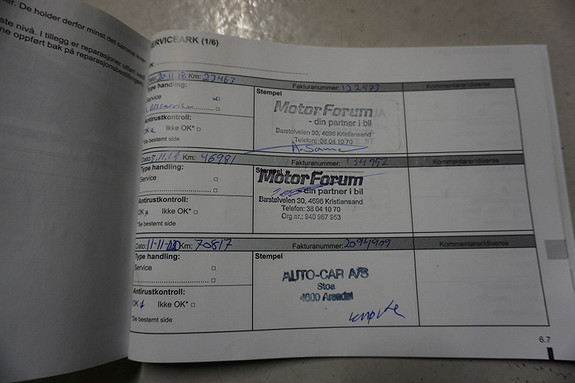 er. De holder derfor minst det samme
ste nivå. I tillegg er reparasjoner utført med
ne oppført bak på reparasjonsbestillingen
SERVICEARK (1/6)
Dato: 20.11.18 Km: 23463 Fakturanummer: Kommentarer/diverse
Type handling: Stempel
Service
MotorForum
- din partner i bil
Barstølveien 30, 4696 Kristiansand
Telefon: 38 04 10 70
Antirustkontroll:
OK Ikke OK*
*Se bestemt side
Dato: Km: 46981 Fakturanummer: Kommentarer/diverse
Type handling: Stempel
Service
MotorForum
- din partner i bil
Barstølveien 30, 4696 Kristiansand
Telefon: 38 04 10 70
Org.nr.: 940 967 963
Antirustkontroll:
OK Ikke OK*
*Se bestemt side
Dato: 11-11-20 Km: 70817 Fakturanummer: 2094909 Kommentarer/diverse
Type handling: Stempel
Service
AUTO-CAR A/S
Stoa
4800 Arendal
Antirustkontroll:
OK Ikke OK*
*Se bestemt side
6.7